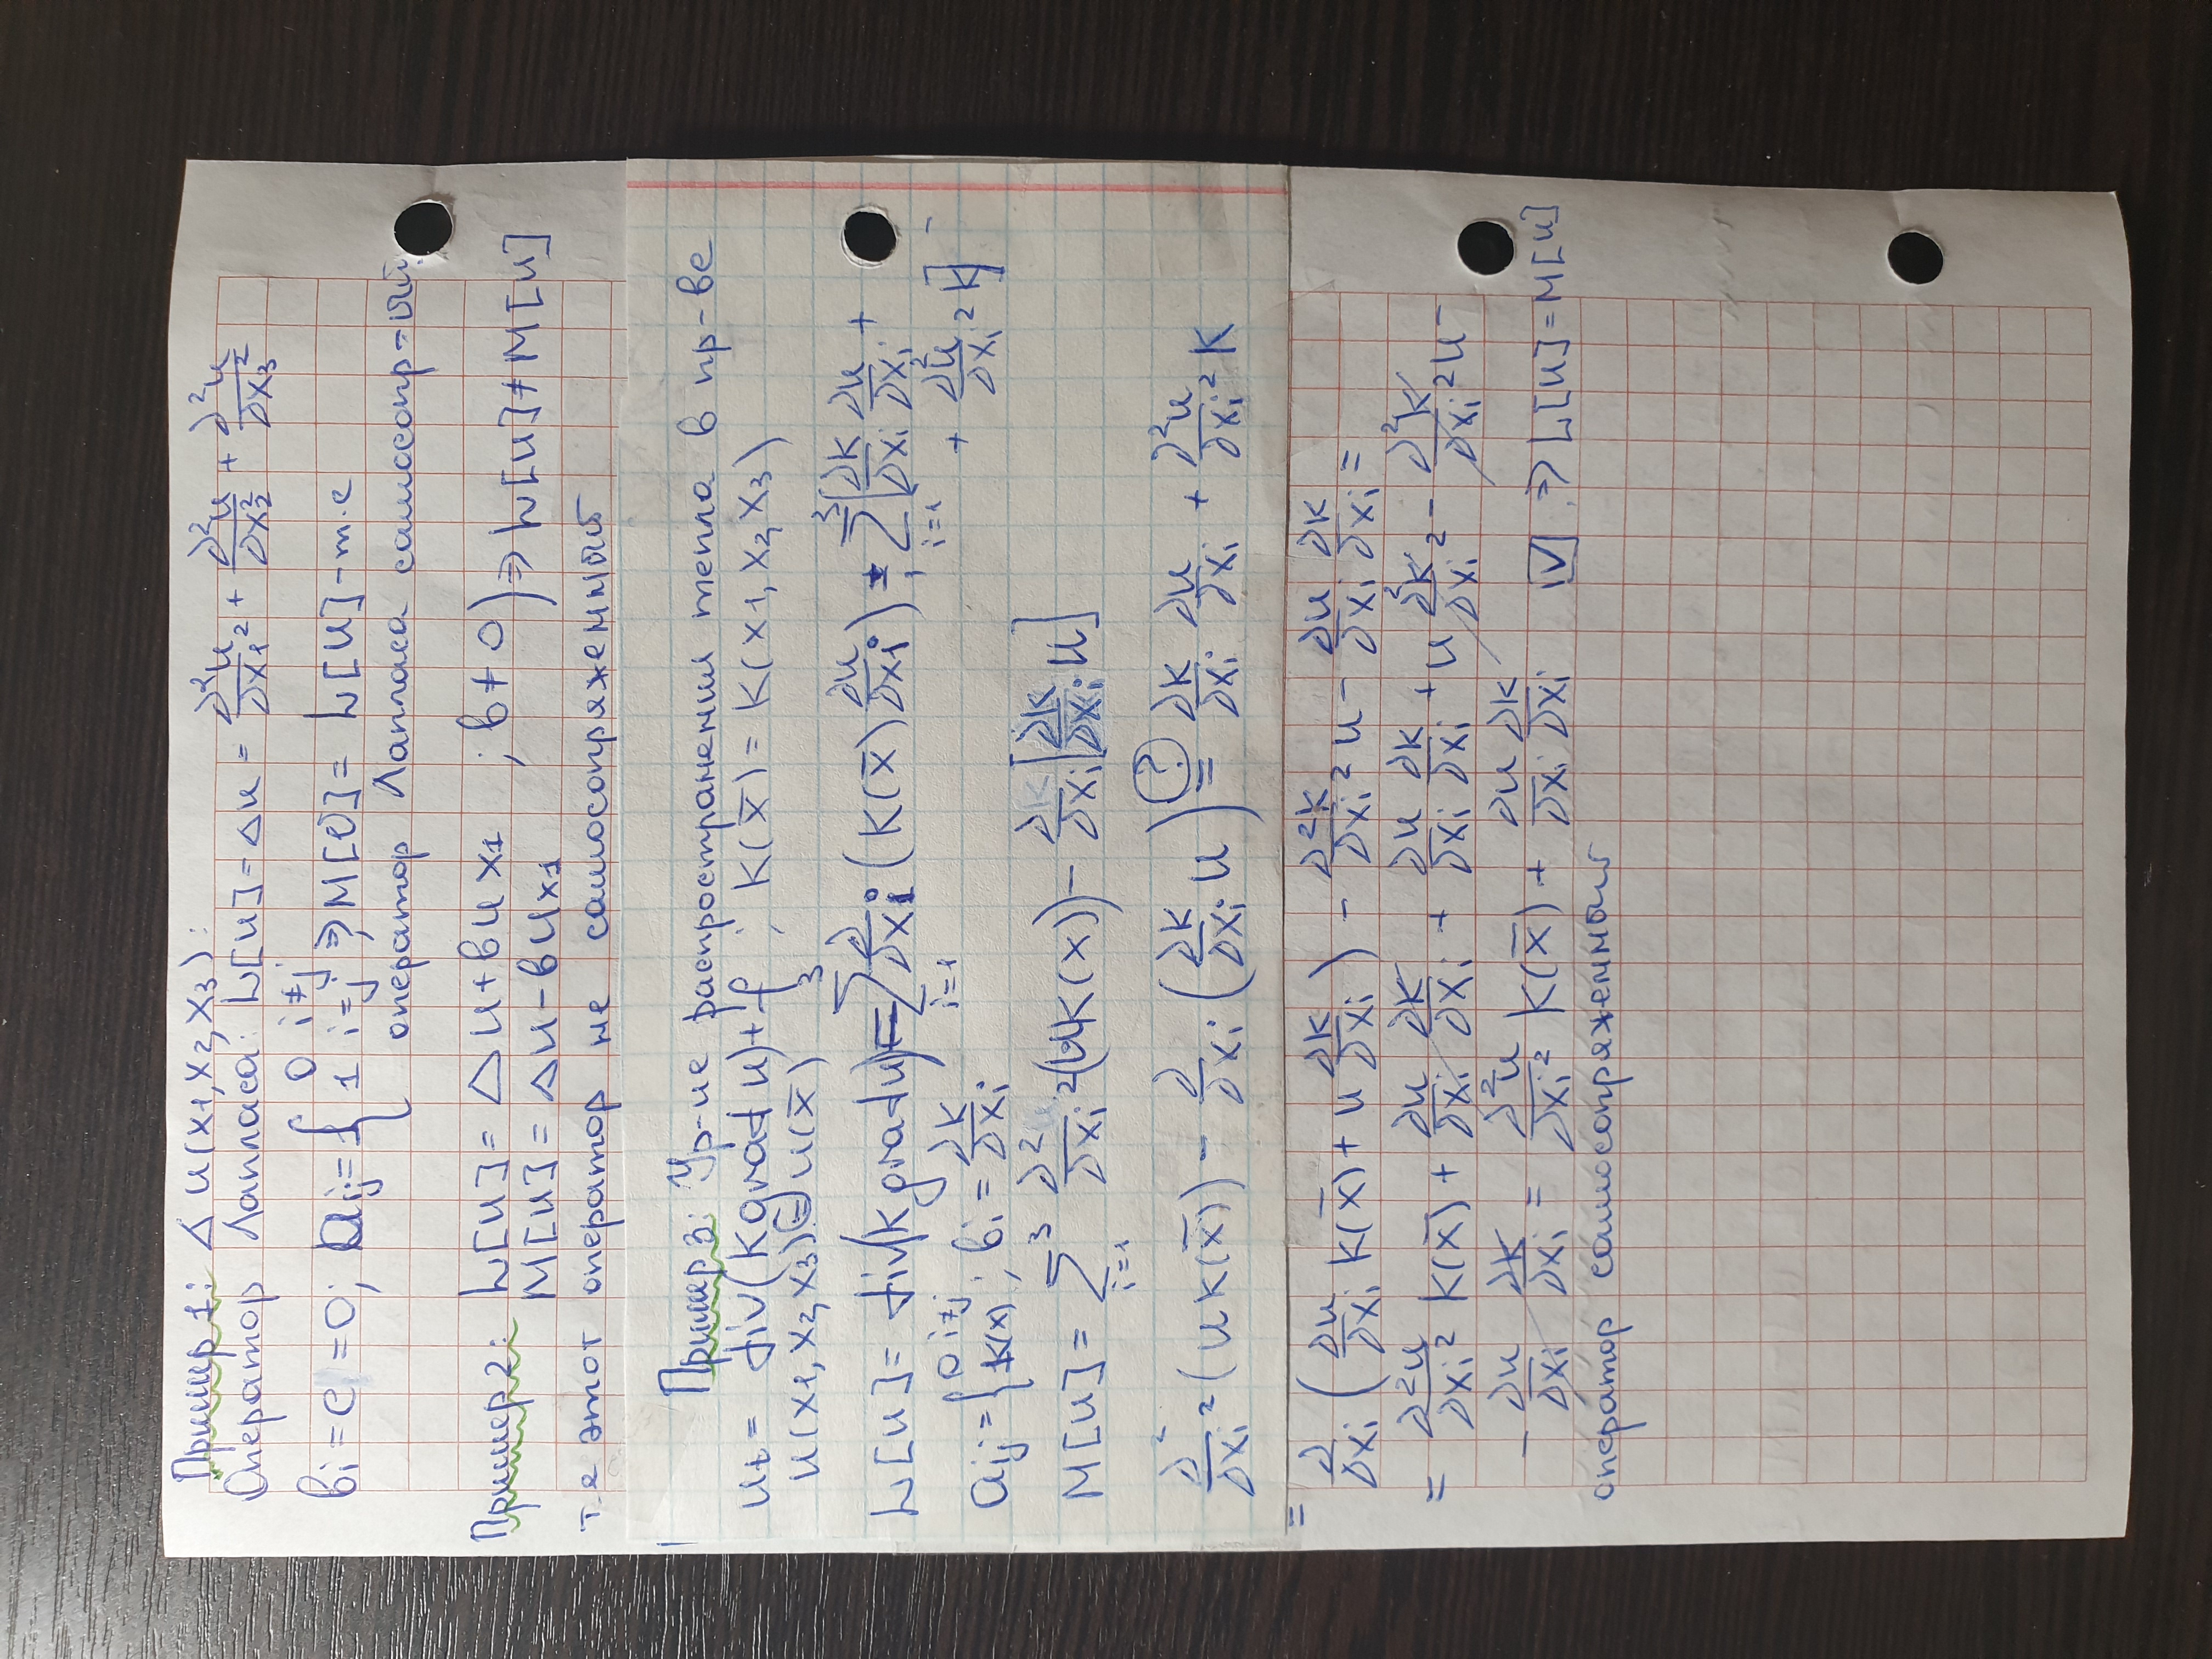 Пример 1: Δ u(x1, x2, x3):
Оператор Лапласа: L[u] = Δu = ∂²u/∂x1² + ∂²u/∂x2² + ∂²u/∂x3²
bi = c = 0; aij = { 0 i≠j
1 i=j ⇒ M[v] = L[u] - т.е
оператор Лапласа самосопр-ый.
Пример 2: L[u] = Δu + bux1 ; b ≠ 0 ) ⇒ L[u] ≠ M[u]
M[u] = Δu - bux1
т.е этот оператор не самосопряженный
Пример 3: Ур-ие распространения тепла в пр-ве
ut = div(k grad u) + f ; k(x̄) = k(x1, x2, x3)
u(x1, x2, x3) = u(x̄)
L[u] = div(k grad u) = ∑ i=1 3 ∂/∂xi (k(x̄) ∂u/∂xi) = ∑ i=1 3 [∂k/∂xi ∂u/∂xi +
+ ∂²u/∂xi² k] -
aij = { 0 i≠j
k(x) ; bi = ∂k/∂xi
M[u] = ∑ i=1 3 ∂²/∂xi² (uk(x)) - ∂/∂xi [∂k/∂xi · u]
∂²/∂xi² (uk(x̄)) - ∂/∂xi (∂k/∂xi u) =(?) ∂k/∂xi ∂u/∂xi + ∂²u/∂xi² k
= ∂/∂xi (∂u/∂xi k(x̄) + u ∂k/∂xi) - ∂²k/∂xi² u - ∂u/∂xi ∂k/∂xi =
= ∂²u/∂xi² k(x̄) + ∂u/∂xi ∂k/∂xi + ∂u/∂xi ∂k/∂xi + u ∂²k/∂xi² - ∂²k/∂xi² u -
- ∂u/∂xi ∂k/∂xi = ∂²u/∂xi² k(x̄) + ∂u/∂xi ∂k/∂xi [V] ⇒ L[u] = M[u]
оператор самосопряженный